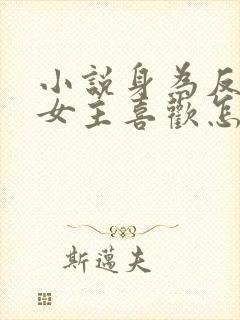 小說身為反
女主喜歡怎
斯邁夫